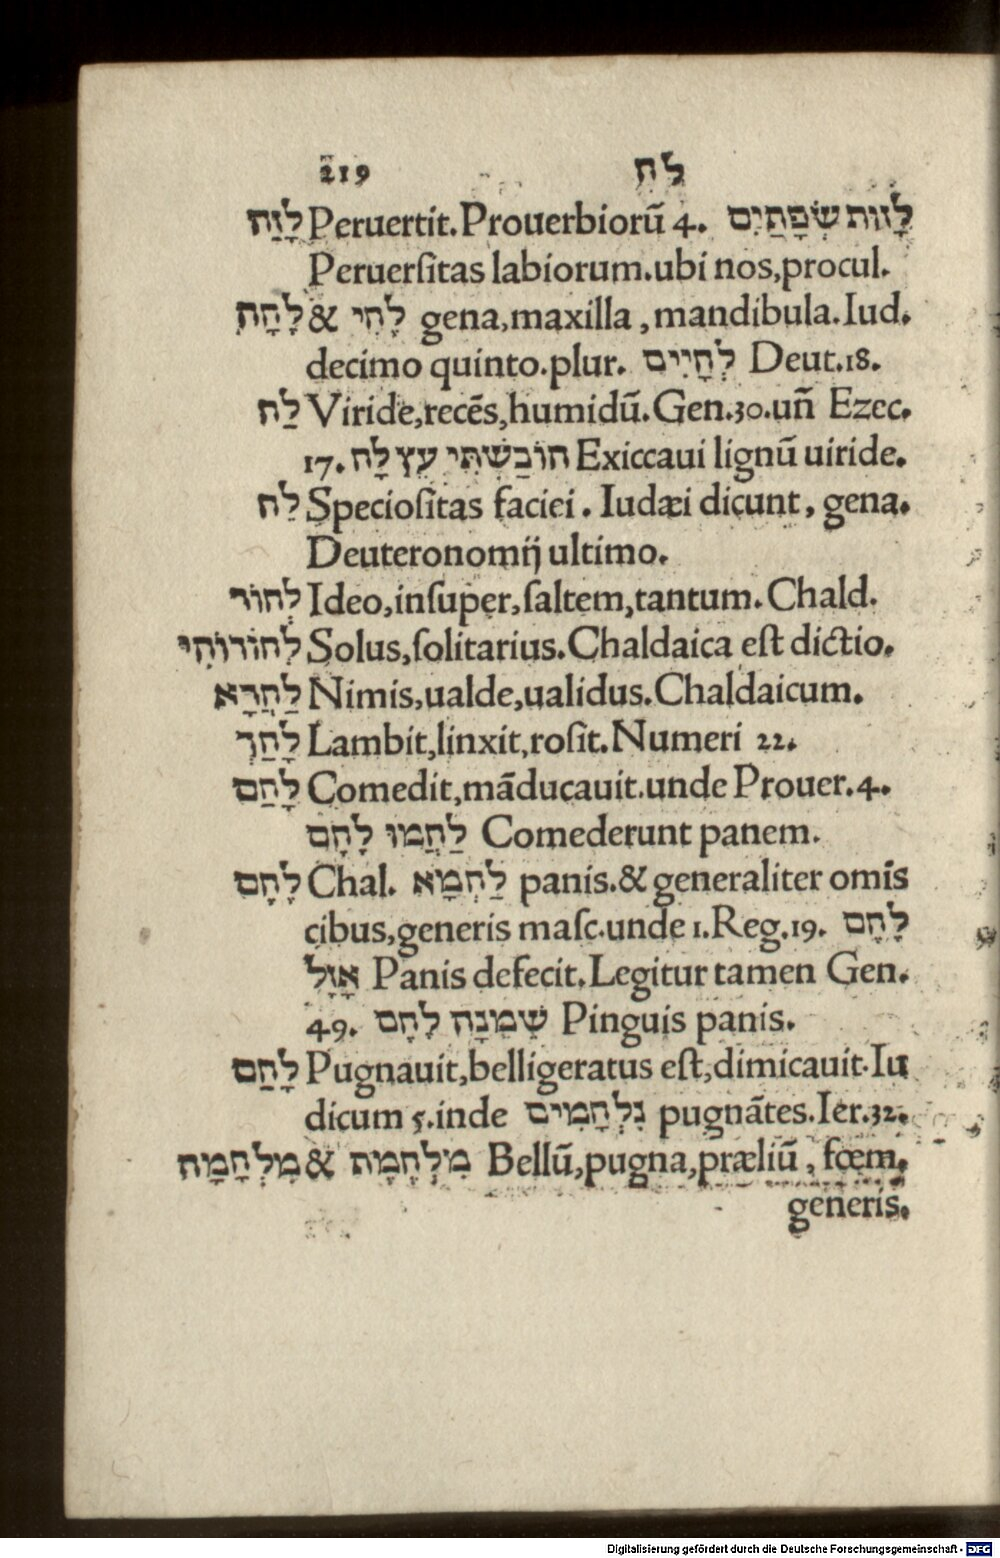 219 לח
לָזַח Peruertit.Prouerbiorū 4. לָזוּת שְׂפָתַיִם
Peruerſitas labiorum.ubi nos,procul.
לָחָת & לָחִי gena,maxilla,mandibula.Iud.
decimo quinto.plur. לְחָיִים Deut.18.
לַח Viride,recēs,humidū.Gen.30.uñ Ezec.
17. הוֹבַשְׁתִּי עֵץ לָח Exiccaui lignū uiride.
לֵח Specioſitas faciei. Iudæi dicunt, gena.
Deuteronomij ultimo.
לְחוֹד Ideo,inſuper,ſaltem,tantum.Chald.
לְחוֹדוֹהִי Solus,ſolitarius.Chaldaica eſt dictio.
לַחֲרָא Nimis,ualde,ualidus.Chaldaicum.
לָחַךְ Lambit,linxit,roſit.Numeri 22.
לָחַם Comedit,māducauit.unde Prouer.4.
לַחֲמוּ לָחֶם Comederunt panem.
לֶחֶם Chal. לַחְמָא panis.& generaliter omīs
cibus,generis maſc.unde 1.Reg.19. לֶחֶם
אָזַל Panis defecit.Legitur tamen Gen.
49. שְׁמֵנָה לֶחֶם Pinguis panis.
לָחַם Pugnauit,belligeratus eſt,dimicauit.Iu
dicum 5.inde נִלְחָמִים pugnātes.Ier.32.
מִלְחָמָה & מִלְחֶמֶת Bellū,pugna,præliū, fœm.
generis.
Digitalisierung gefördert durch die Deutsche Forschungsgemeinschaft - DFG